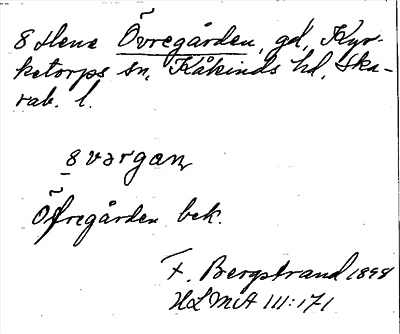 8 Hene Övregården, gd, Kyr-
ketorps sn, Kåkinds hd, Ska-
rab. l.
8vargan
Öfregården bek.
F. Bergstrand 1898
HLMA III:171